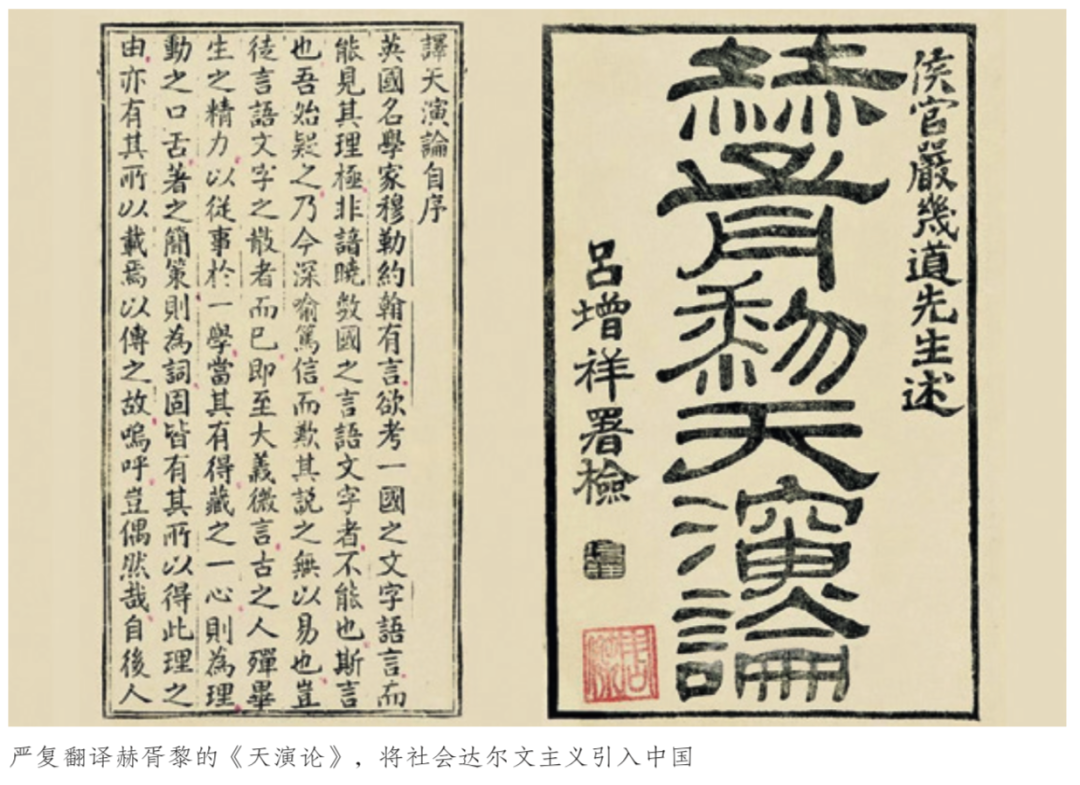 侯官嚴幾道先生述
赫胥黎天演論
呂增祥署檢
譯天演論自序
英國名學家穆勒約翰有言欲考一國之文字語言而
能見其理極非諳曉數國之言語文字者不能也斯言
也吾始疑之乃今深喻篤信而歎其說之無以易也豈
徒言語文字之散者而已即至大義微言古之人殫畢
生之精力以從事於一學當其有得藏之一心則為理
動之口舌著之簡策則為詞固皆有其所以得此理之
由亦有其所以載焉以傳之故嗚呼豈偶然哉自後人
严复翻译赫胥黎的《天演论》，将社会达尔文主义引入中国